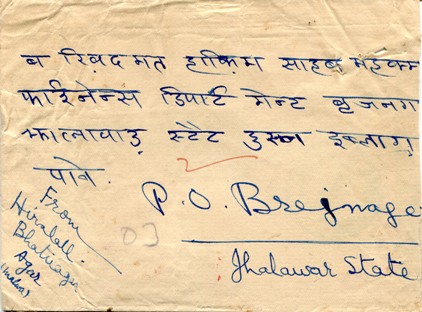 ब खिदमत हाकिम साहब महकम
फाईनेन्स डिपार्ट मेन्ट बृजनग
झालावाड़ स्टेट हुस्न इब्लाग
पावे.
P. O. Brijnaga
Jhalawar State
From
Hiralall.
Bhatnagar
Agar
(Malwa)
03